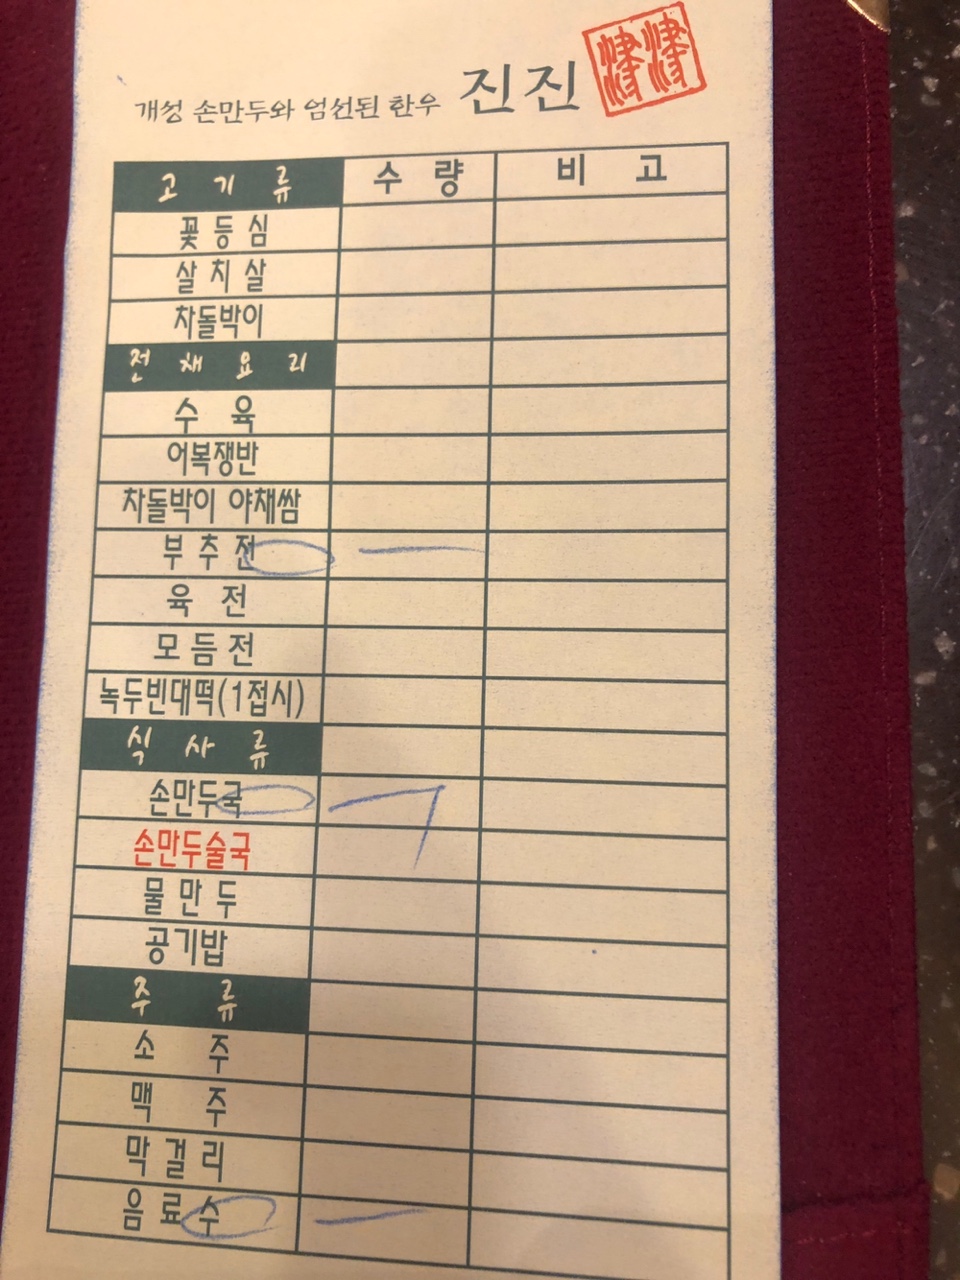 개성 손만두와 엄선된 한우 진진 津津
고기류 수량 비고
꽃등심
살치살
차돌박이
전채요리
수육
어복쟁반
차돌박이 야채쌈
부추전 一
육전
모듬전
녹두빈대떡(1접시)
식사류
손만두국
손만두술국
물만두
공기밥
주류
소주
맥주
막걸리
음료수 一